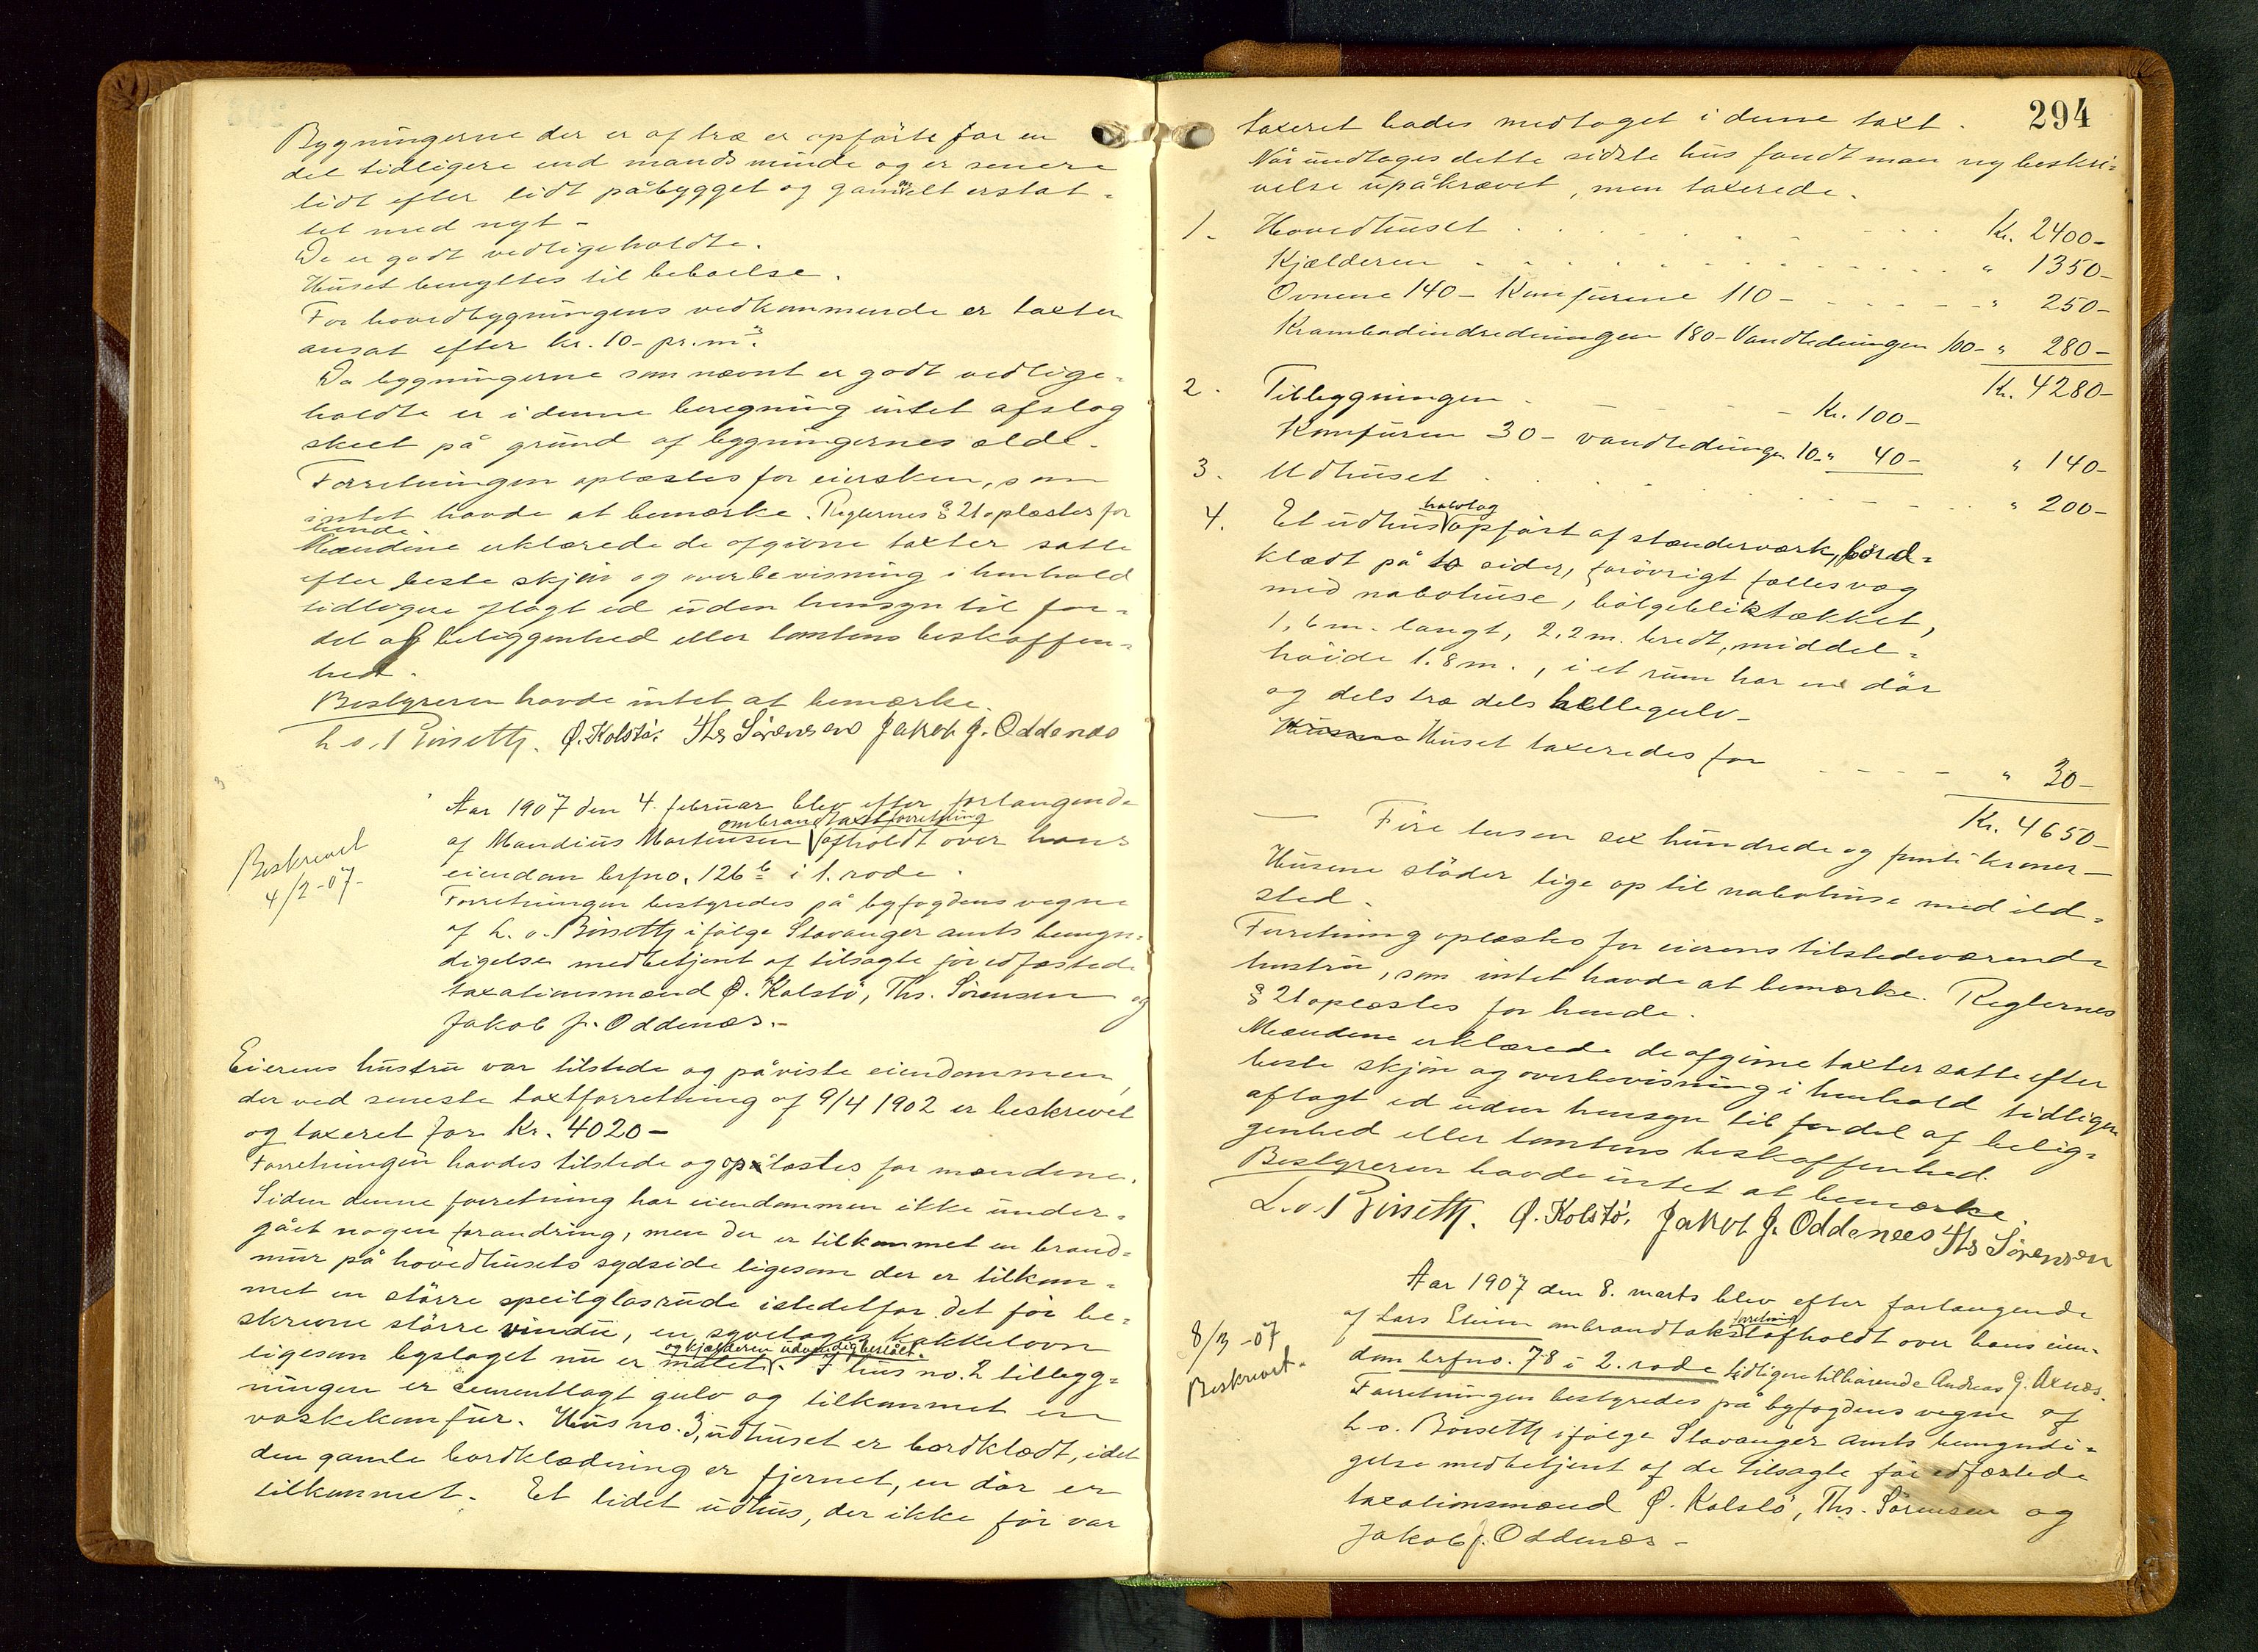 Bygningerne der er af træ er opførte for en
del tidligere end mands minde og er senere
lidt efter lidt påbygget og gammelt erstat-
tet med nyt -
De er godt vedligeholdte.
Huset benyttes til beboelse.
For hovedbygningens vedkommende er taxten
ansat efter kr. 10 - pr. m³.
Da bygningerne som nævnt er godt vedlige-
holdte er i denne beregning intet afslag
skeet på grund af bygningernes ælde.
Forretningen oplæstes for eiersken, som
intet havde at bemærke. Reglernes § 21 oplæstes for
hende
Mændene erklærede de afgivne taxter satte
efter beste skjøn og overbevisning i henhold
tidligere aflagt ed uden hensyn til for-
del af beliggenhed eller tomtens beskaffen-
hed.
Bestyreren havde intet at bemærke.
L. o. Børsett. Ø. Kolstø. Ths Sørensen Jakob J. Oddenæs
Aar 1907 den 4. februar blev efter forlangende
ombrandtaxtforretning
af Mandius Martinsen afholdt over hans
eiendom brfno. 126 b i 1. rode.
Beskrevet
4/2-07-
Forretningen bestyredes på byfogdens vegne
af L. o. Børsett ifølge Stavanger amts bemyn-
digelse medbetjent af tilsagte før edfæstede
taxationsmænd Ø. Kolstø, Ths. Sørensen og
Jakob J. Oddenæs. -
Eierens hustru var tilstede og påviste eiendommen,
der ved seneste taxtforretning af 9/4 1902 er beskrevet
og taxeret for kr. 4020 -
Forretningen havdes tilstede og oplæstes for mændene.
Siden denne forretning har eiendommen ikke under-
gået nogen forandring, men der er tilkommet en brand-
mur på hovedhusets sydside ligesom der er tilkom-
met en større speilglasrude istedetfor det før be-
skrevne større vindu, en syvetages kakkelovn
og kjælderen udvendig beslåët.
ligesom bislaget nu er malet. I hus no. 2 tilbyg-
ningen er cementlagt gulv og tilkommet en
vaskekomfur. Hus no. 3, udhuset er bordklædt, idet
den gamle bordklædning er fjernet, en dør er
tilkommet. Et lidet udhus, der ikke før var
294
taxeret havdes medtaget i denne taxt.
Når undtages dette sidste hus fandt man ny beskri-
velse upåkrævet, men taxerede.
1. Hovedhuset Kr. 2400 -
Kjælderen " 1350 -
Ovnene 140 - Komfurene 110 - " 250 -
Krambodindredningen 180 - Vandledningen 100 - " 280 -
Kr. 4280 -
2. Tilbygningen Kr. 100 -
Komfuren 30 - vandledningen 10 - " 40 - " 140 -
3. Udhuset " 200 -
halvtag
4. Et udhus opført af stænderværk, bord-
klædt på to sider, forøvrigt fælles væg
med nabohuse, bølgebliktækket,
1,6 m. langt, 2,2 m. bredt, middel-
høide 1.8 m., i et rum har en dør
og dels træ dels hellegulv -
Huset taxeredes for " 30 -
Kr. 4650 -
- Fire tusen sex hundrede og femti kroner -
Husene støder lige op til nabohuse med ild-
sted.
Forretning oplæstes for eierens tilstedeværende
hustru, som intet havde at bemærke. Reglernes
§ 21 oplæstes for hende.
Mændene erklærede de afgivne taxter satte efter
beste skjøn og overbevisning i henhold tidligere
aflagt ed uden hensyn til fordel af belig-
genhed eller tomtens beskaffenhed.
Bestyreren havde intet at bemærke.
L. o. Børsett. Ø. Kolstø. Jakob J. Oddenæs Ths Sørensen
Aar 1907 den 8. marts blev efter forlangende
forretning
af Lars Eliin ombrandtakst afholdt over hans eien-
dom brfno. 78 i 2. rode tidligere tilhørende Andreas G. Axnæs.
8/3-07
Beskrevet.
Forretningen bestyredes på byfogdens vegne af
L. o. Børsett ifølge Stavanger amts bemyndi-
gelse medbetjent af de tilsagte før edfæstede
taxationsmænd Ø. Kolstø, Ths. Sørensen og
Jakob J. Oddenæs -